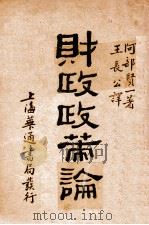 阿部賢一著
王長公譯
財政政策論
上海華通書局發行